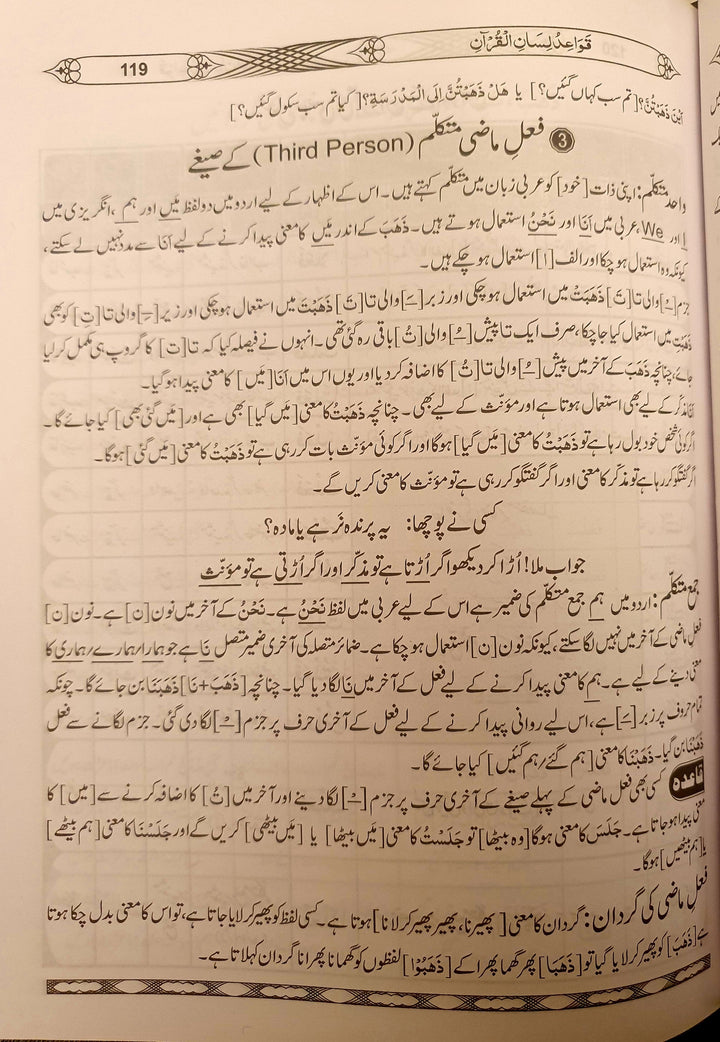 قَوَاعِدُ لِسَانِ الْقُرْآنِ
119
اَيْنَ ذَهَبْتُنَّ؟[تم سب کہاں گئیں؟] یا هَلْ ذَهَبْتُنَّ اِلَى الْمَدْرَسَةِ؟[کیا تم سب سکول گئیں؟]
3 فعلِ ماضی متکلّم (Third Person) کے صیغے
واحد متکلّم: اپنی ذات [خود] کو عربی زبان میں متکلّم کہتے ہیں۔ اس کے اظہار کے لیے اردو میں دو لفظ مَیں اور ہم، انگریزی میں
I اور We، عربی میں اَنَا اور نَحْنُ استعمال ہوتے ہیں۔ ذَهَبَ کے اندر مَیں کا معنی پیدا کرنے کے لیے اَنَا سے مدد نہیں لے سکتے،
کیونکہ وہ استعمال ہو چکا اور الف [ا] استعمال ہو چکے ہیں۔
جزم [ـْ] والی تا [تْ] ذَهَبَتْ میں استعمال ہو چکی اور زبر [ـَ] والی تا [تَ] ذَهَبْتَ میں استعمال ہو چکی اور زیر [ـِ] والی تا [تِ] کو بھی
ذَهَبْتِ میں استعمال کیا جا چکا، صرف ایک تا پیش [ـُ] والی [تُ] باقی رہ گئی تھی۔ انہوں نے فیصلہ کیا کہ تا [ت] کا گروپ ہی مکمل کر لیا
جائے، چنانچہ ذَهَبَ کے آخر میں پیش [ـُ] والی تا [تُ] کا اضافہ کر دیا اور یوں اس میں اَنَا [مَیں] کا معنی پیدا ہو گیا۔
اَنَا مذکّر کے لیے بھی استعمال ہوتا ہے اور مؤنّث کے لیے بھی۔ چنانچہ ذَهَبْتُ کا معنی [مَیں گیا] بھی ہے اور [مَیں گئی بھی] کیا جائے گا۔
اگر کوئی شخص خود بول رہا ہے تو ذَهَبْتُ کا معنی [مَیں گیا] ہوگا اور اگر کوئی مؤنّث بات کر رہی ہے تو ذَهَبْتُ کا معنی [مَیں گئی] ہوگا۔
اگر گفتگو کر رہا ہے تو مذکّر کا معنی اور اگر گفتگو کر رہی ہے تو مؤنّث کا معنی کریں گے۔
کسی نے پوچھا: یہ پرندہ نَر ہے یا مادہ؟
جواب ملا! اُڑا کر دیکھو اگر اُڑتا ہے تو مذکّر اور اگر اُڑتی ہے تو مؤنّث
جمع متکلّم: اردو میں ہم جمع متکلّم کی ضمیر ہے اس کے لیے عربی میں لفظ نَحْنُ ہے۔ نَحْنُ کے آخر میں نون [ن] ہے۔ نون [ن]
فعل ماضی کے آخر میں نہیں لگا سکتے، کیونکہ نون [ن] استعمال ہو چکا ہے۔ ضمائر متصلہ کی آخری ضمیر متصل نَا ہے جو ہمارا، ہمارے، ہماری کا
معنی دینے کے لیے ہے۔ ہم کا معنی پیدا کرنے کے لیے فعل کے آخر میں نَا لگا دیا گیا۔ چنانچہ [ذَهَبَ+نَا] ذَهَبَنَا بن جائے گا۔ چونکہ
تمام حروف پر زبر [ـَ] ہے، اس لیے روانی پیدا کرنے کے لیے فعل کے آخری حرف پر جزم [ـْ] لگا دی گئی۔ جزم لگانے سے فعل
ذَهَبْنَا بن گیا۔ ذَهَبْنَا کا معنی [ہم گئے، ہم گئیں] کیا جائے گا۔
قاعدہ کسی بھی فعل ماضی کے پہلے صیغے کے آخری حرف پر جزم [ـْ] لگا دینے اور آخر میں [تُ] کا اضافہ کرنے سے [مَیں] کا
معنی پیدا ہو جاتا ہے۔ جَلَسَ کا معنی ہوگا [وہ بیٹھا] تو جَلَسْتُ کا معنی [مَیں بیٹھا] یا [مَیں بیٹھی] کریں گے اور جَلَسْنَا کا معنی [ہم بیٹھے]
یا [ہم بیٹھیں] ہوگا۔
فعل ماضی کی گردان: گردان کا معنی [پھیرنا، پھیر پھیر کر لانا] ہوتا ہے۔ کسی لفظ کو پھیر کر لایا جاتا ہے، تو اس کا معنی بدل چکا ہوتا
ہے [ذَهَبَ] کو پھیر کر لایا گیا تو [ذَهَبَا] پھر گھما پھرا کے [ذَهَبُوْا] لفظوں کو گھمانا پھرانا گردان کہلاتا ہے۔